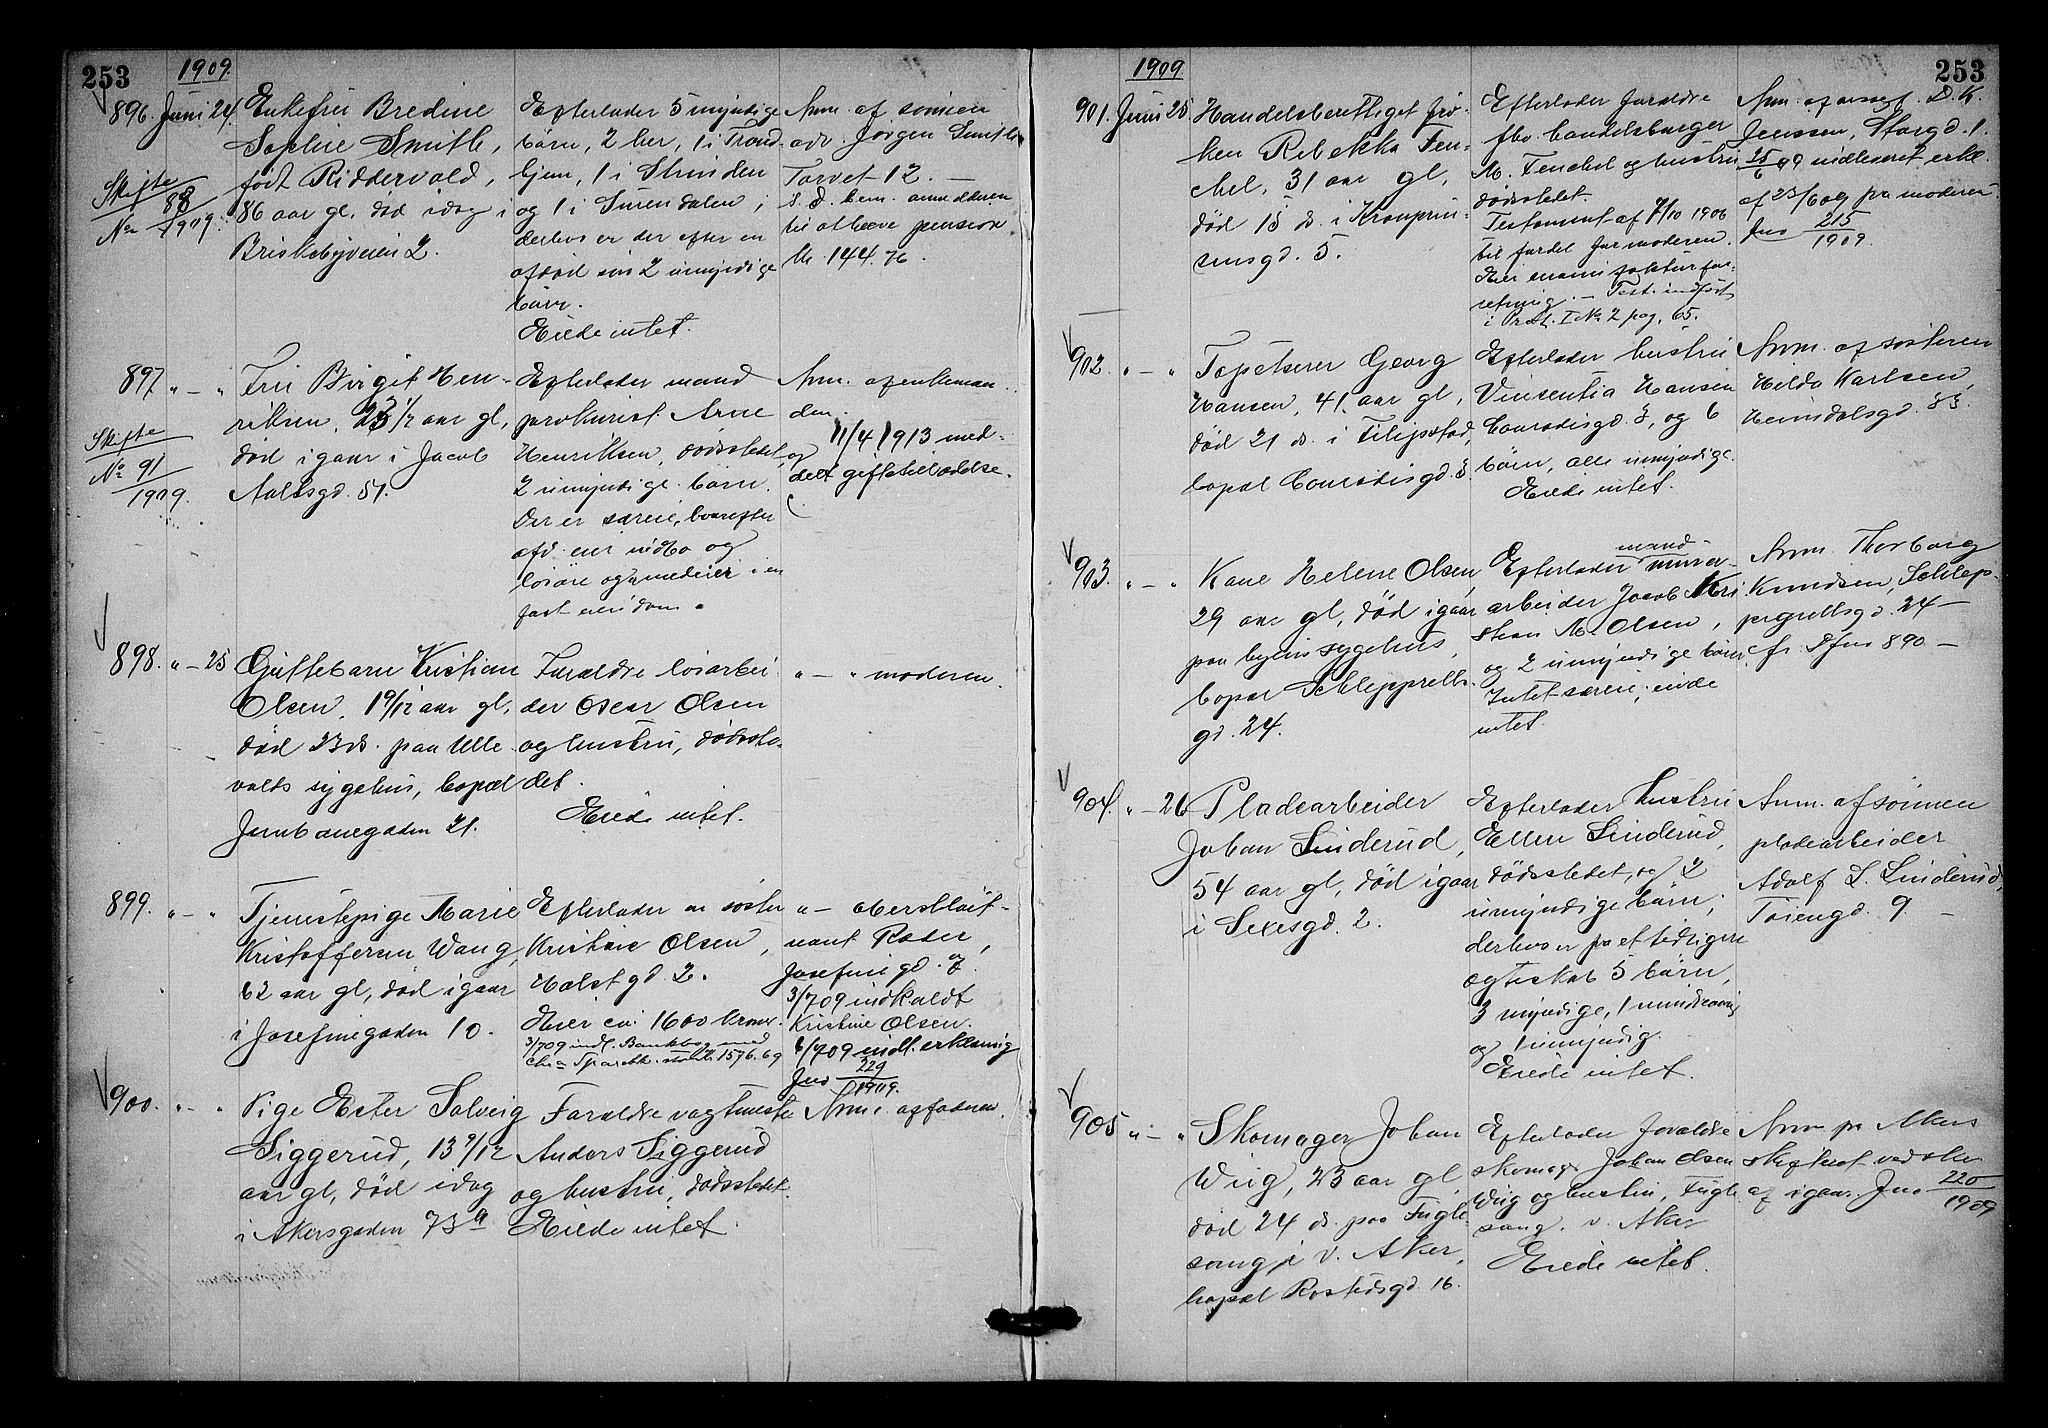 253
1909.
896. Juni 24.
Skifte
No 88
1909.
Enkefru Bredine
Sophie Smith,
født Riddervold,
86 aar gl, død idag i
Briskebyveien 2.
Efterlader 5 myndige
børn, 2 her, 1 i Trond-
hjem, 1 i Strinden
og 1 i Surendalen,
derhos er der efter en
afdød søn 2 umyndige
børn.
Eiede intet.
Anm. af sønnen
adv. Jørgen Smith
Torvet 12. —
S. D. bem. anmelderen
til at hæve pension
kr. 144.76.
897. " — "
Skifte
No 91
1909.
Fru Birgit Hen-
riksen, 23 1/2 aar gl,
død igaar i Jacob
Aallsgd. 51.
Efterlader mand
prokurist Arne
Henriksen, dødsstedet, og
2 umyndige børn.
Der er særeie, hvorefter
afd. eier indbo og
løsøre og medeier i en
fast eiendom.
Anm. af enkeman-
den.
11/4 1913 med-
delt giftetilladelse.
898. " — 25
Guttebarn Kristian
Olsen, 1 9/12 aar gl,
død 23 ds. paa Ulle-
volds sygehus, bopæl
Jernbanegaden 21.
Forældre løsarbei-
der Oscar Olsen
og hustru, dødsste-
det.
Eiede intet.
" — " moderen.
899. " — "
Tjenestepige Marie
Kristoffersen Wang,
62 aar gl, død igaar
i Josefinegaden 10.
Efterlader en søster
Kristine Olsen,
Holst gd. 2.
Eier ca: 1600 kroner.
3/7 09 indl. Bankbog med
Chra Sparebk. 1576.69
" — oberstløit-
nant Roder,
Josefinegd. 7.
3/7 09 indkaldt
Kristine Olsen.
6/7 09 indl. erklæring
Jno 229
1909.
900. " — "
Pige Ester Solveig
Siggerud, 13 9/12
aar gl, død idag
i Akersgaden 73 a
Forældre vagtmester
Anders Siggerud
og hustru, dødsstedet.
Eiede intet.
Anm. af faderen.
1909
253
901. Juni 25
Handelsberettiget frø-
ken Rebekka Fen-
chel, 31 aar gl,
død 15 ds. i Kronprin-
sensgd. 5.
Efterlader forældre
fhv. handelsborger
M. Fenchel og hustru
dødsstedet.
Testament af 7/10 1906
til fordel for moderen.
Eier manufakturfor-
retning. — Test. indført
i Prot. I No 2 pag. 65.
Anm. af D. K.
Jenssen, Storgd. 1.
25/6 09 indleveret erkl.
af 23/6 09 fra moderen
Jno 215
1909.
902. " — "
Tapetserer Georg
Hansen, 41 aar gl,
død 21 ds. i Filipstad,
bopæl Conradisgd. 3.
Efterlader hustru
Vinsentia Hansen
Conradisgd. 3, og 6
børn, alle umyndige.
Eiede intet.
Anm. af søsteren
Hilda Karlsen,
Heimdalsgd. 33.
903. " — "
Kone Helene Olsen,
29 aar gl, død igaar
paa byens sygehus,
bopæl Schleppegrells-
gd. 24.
Efterlader mand murer-
arbeider Jacob Kri-
stian M. Olsen,
og 2 umyndige børn.
Intet særeie; eiede
intet.
Anm. Thorborg
Knudsen, Schlep-
pegrellsgd. 24 —
cfr. Dfno 890 —
904. " — 26
Pladearbeider
Johan Linderud,
54 aar gl, død igaar
i Sexesgd. 2.
Efterlader hustru
Ellen Linderud,
dødsstedet, og 2
umyndige børn;
derhos er fra et tidligere
ægteskab 5 børn,
3 myndige, 1 mindreaarig
og 1 umyndig.
Eiede intet.
Anm. af sønnen
pladearbeider
Adolf L. Linderud,
Tøiengd. 9. —
905 " — "
Skomager Johan
Wiig, 23 aar gl,
død 24 ds. paa Fugle-
sang i V. Aker,
bopæl Rostedsgd. 16.
Efterlader forældre
skomager Johan Olsen
Wiig og hustru, Fugle-
sang. v. Aker
Eiede intet.
Anm fra Akers
skifteret ved skr.
af igaar. Jno 220
1909